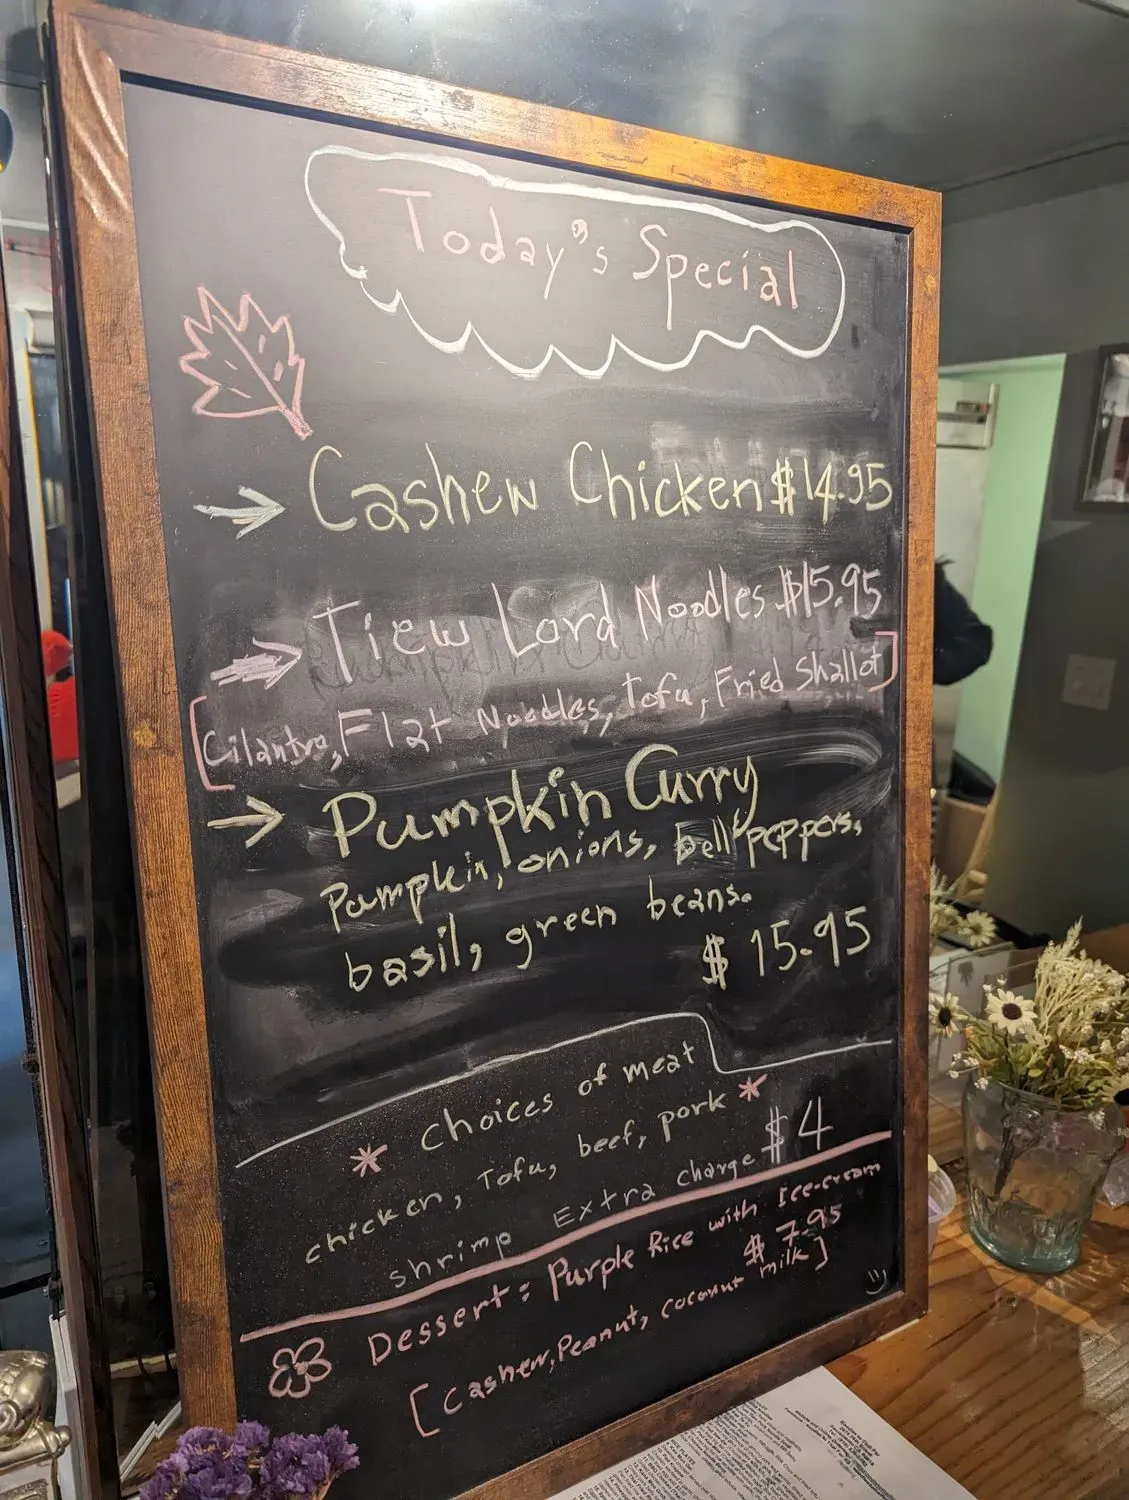 Today's Special
Cashew Chicken $14.95
Tiew Lord Noodles $15.95
[Cilantro, Flat Noodles, Tofu, Fried Shallot]
Pumpkin Curry
Pumpkin, onions, bell peppers,
basil, green beans.
$ 15.95
* Choices of meat
chicken, Tofu, beef, pork *
shrimp Extra charge $4
Dessert: Purple Rice with Ice-cream
$ 7.95
[Cashew, Peanut, coconut milk]